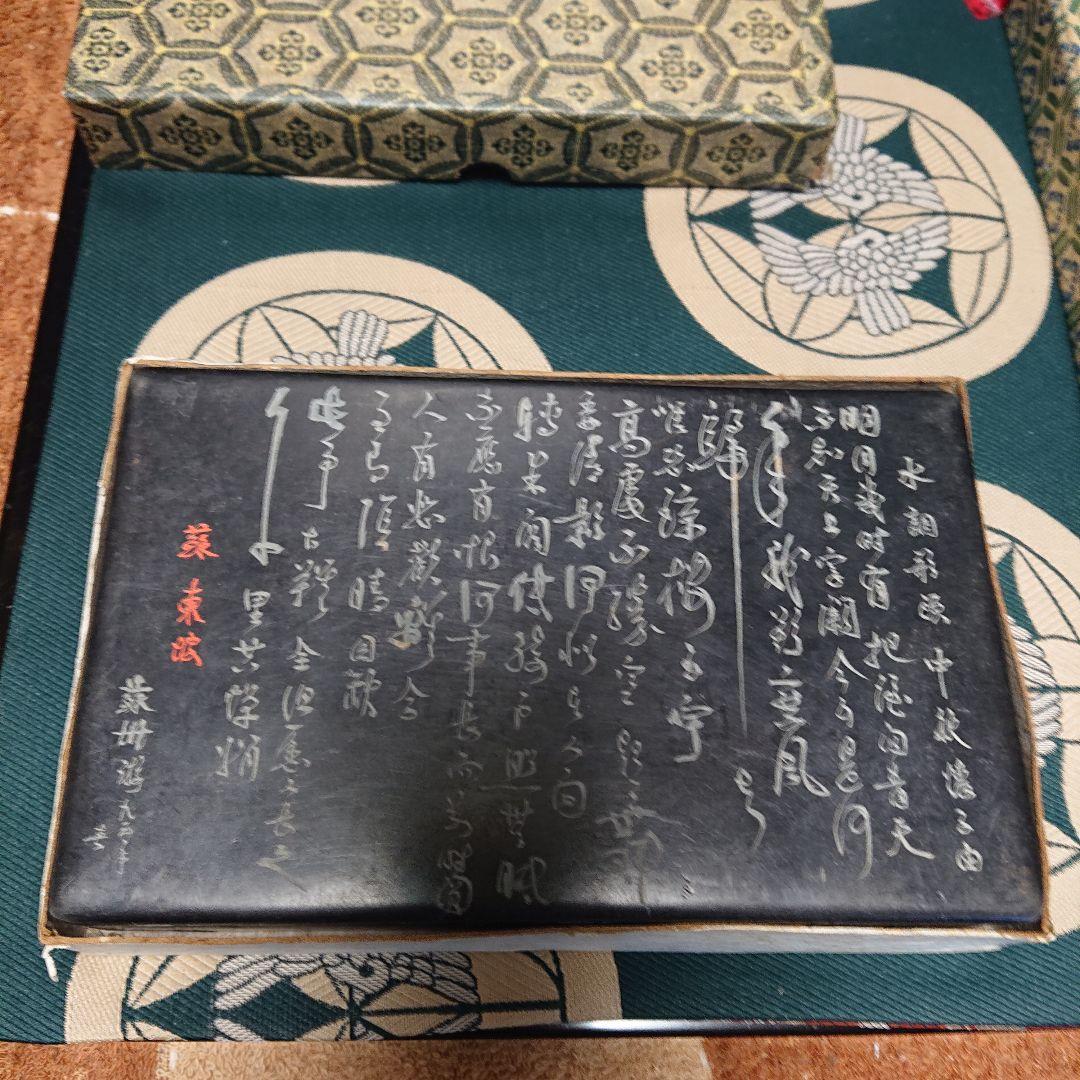 水調歌頭 中秋懷子由
明月幾時有把酒問青天
不知天上宮闕今夕是何
年我欲乘風
歸去
惟恐瓊樓玉宇
高處不勝寒起舞
弄清影何似在人間
轉朱閣低綺戶照無眠
不應有恨何事長向別時圓
人有悲歡離合
月有陰晴圓缺
此事古難全但願人長久
千里共嬋娟
蘇東坡